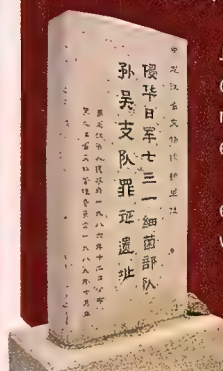 黑龙江省文物保护单位
侵华日军七三一细菌部队
孙吴支队罪证遗址
黑龙江省人民政府一九八六年十二月公布
黑龙江省文物管理委员会一九八九年十月立